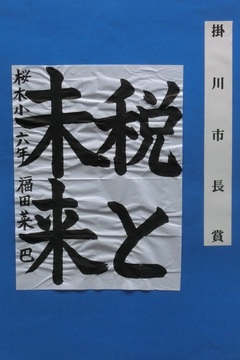 掛川市長賞
税と
未来
桜木小 六年 福田菜巴